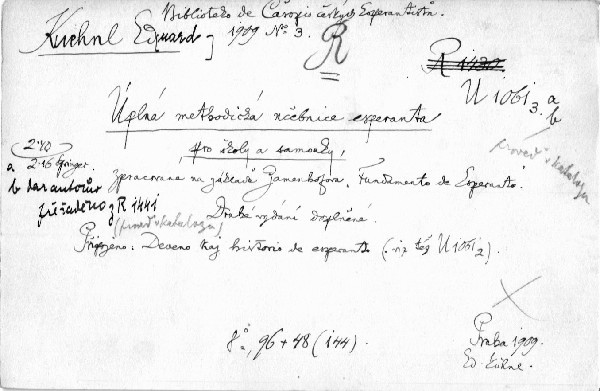 Biblioteko de Časopis českých Esperantistů.
Kuehnl Eduard 1909 No 3.
R
R 1430
U 1061 3. a b
Úplná methodická učebnice esperanta
pro školy a samouky,
2·40
a 2·16
b dar autorův
zpracovaná na základě Zamenhofova „Fundamento de Esperanto“
přiřaděno z R 1441
(proveď v katalogu)
proveď v katalogu
Druhé vydání doplněné.
Připojeno: Deveno kaj historio de esperanto (viz též U 1061 2).
8°, 96 + 48 (144).
Praha 1909.
Ed Kühnl.